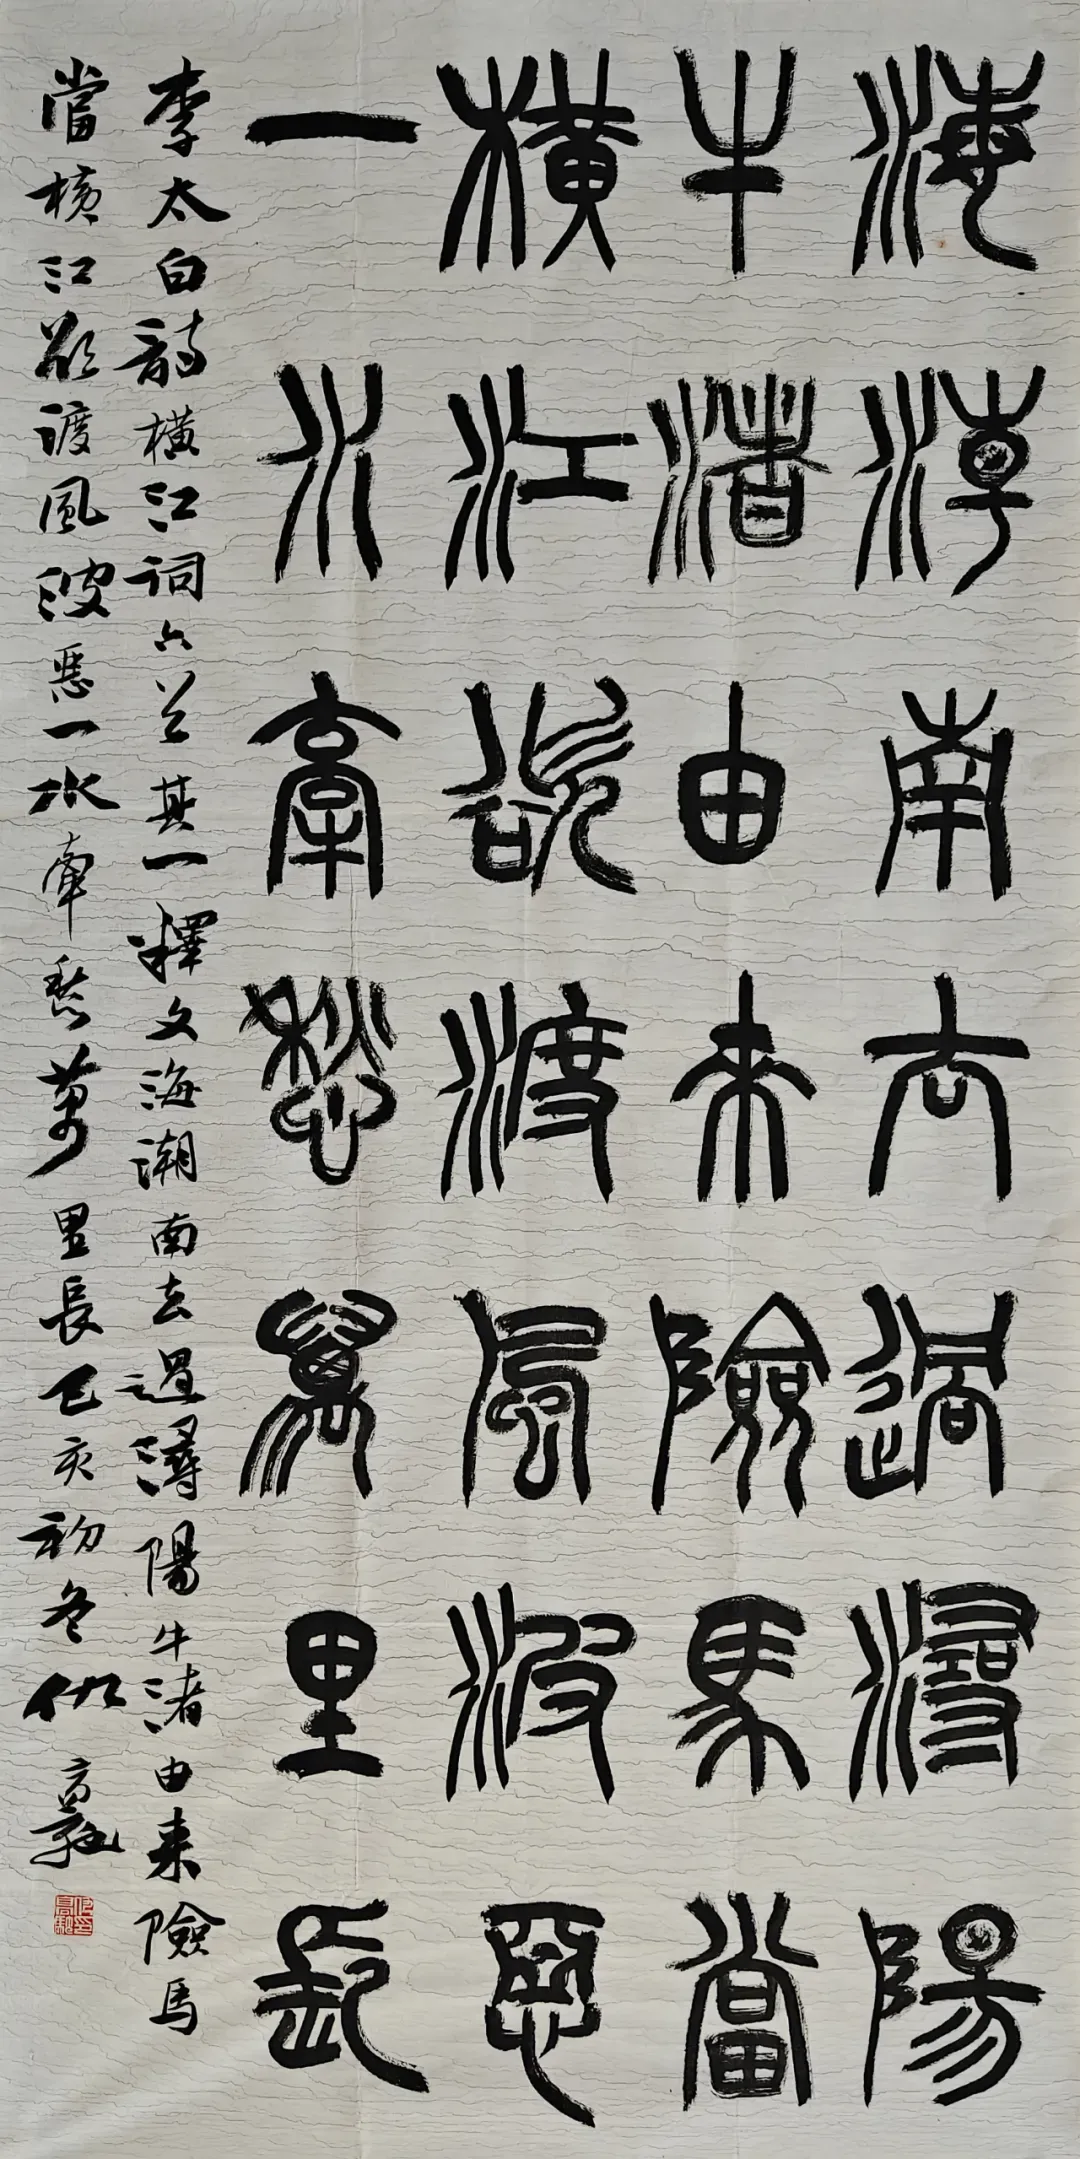 海潮南去過潯陽
牛渚由來險馬當
橫江欲渡風波惡
一水牽愁萬里長
李太白詩橫江詞六首其一釋文海潮南去過潯陽牛渚由來險馬
當橫江欲渡風波惡一水牽愁萬里長己亥初冬仇高馳